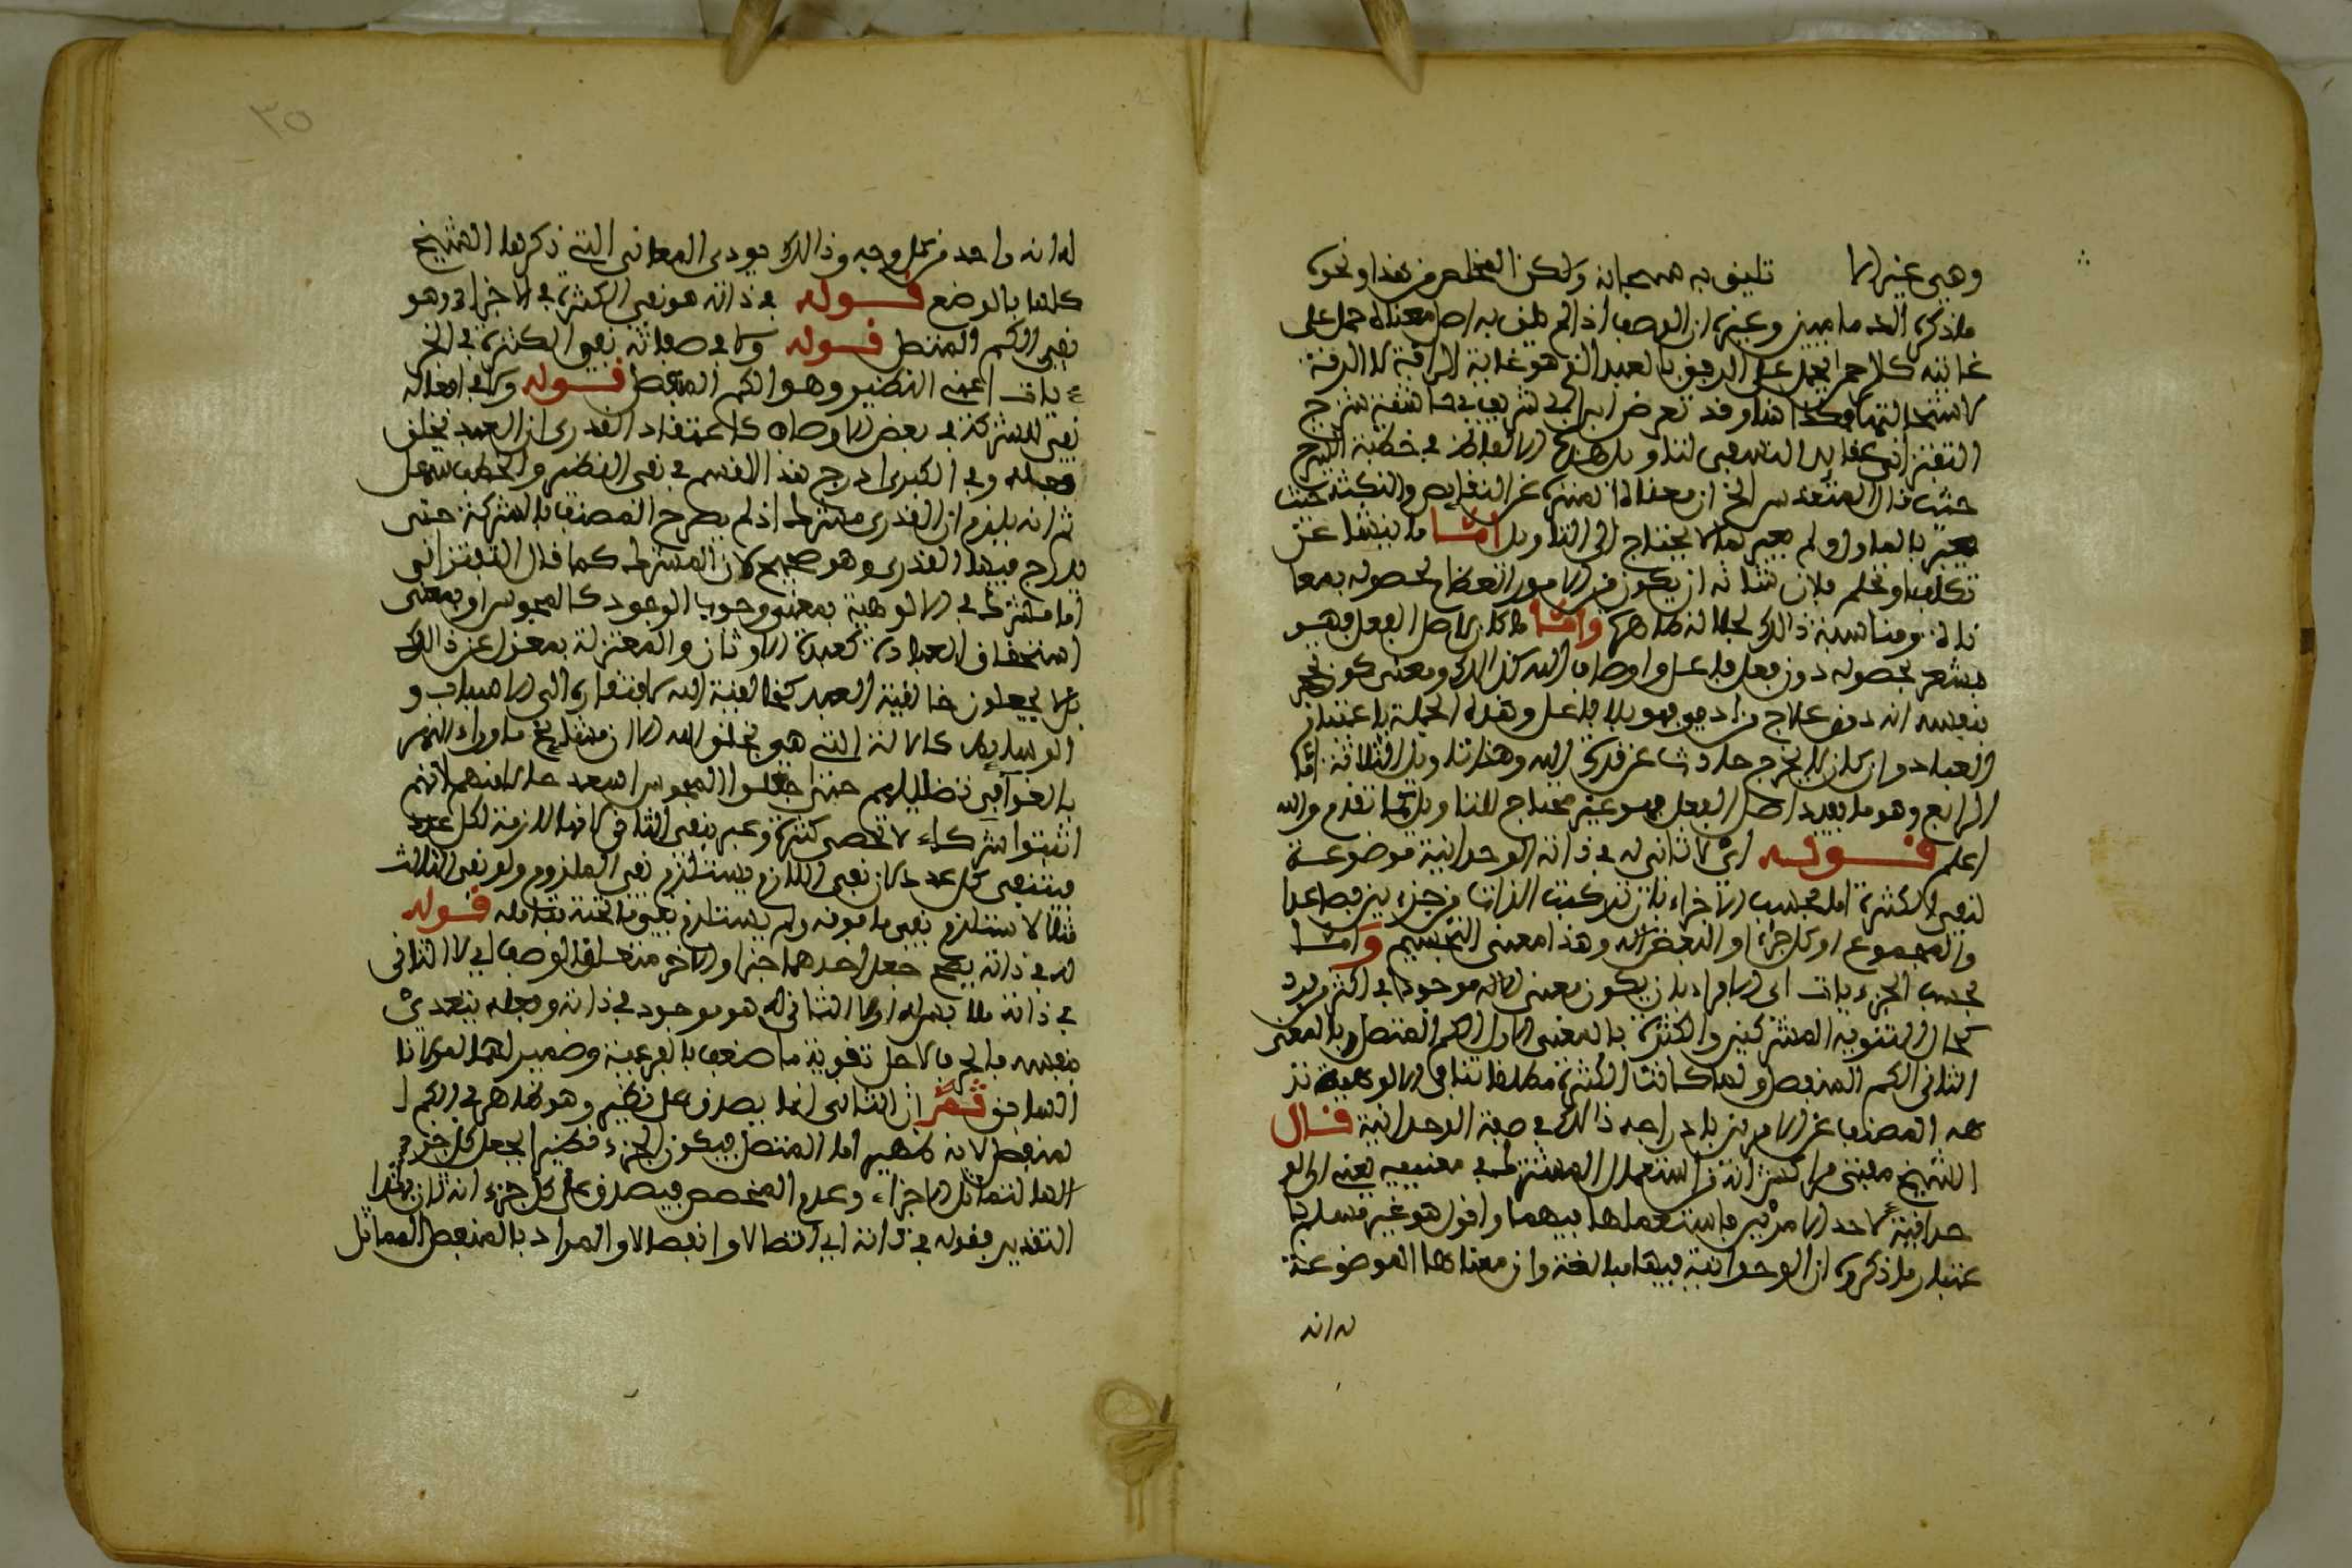 وهي غير لا تليق به سبحانه ولكن المخلص من هذا ونحوه
ما ذكره العلما من وغيره ان الوصف اذا لم يلق به اصل معناه حمل على
غايته كالرحمن يحمل على الرفق بالعبد الذي هو غاية الرافة لا الرقة
وقد تعرض ابن ابي شريف في حاشية شرح
التفتزاني عقايد النسفي لتاويل هذه الالفاظ في خطبة الشرح
حيث قال المتقدس الخ ان معناه المنزه عن النقايص والنكتة حيث
عبر بالماول ولم يعبر بما لا يحتاج الى التاويل اما ما ينشا عن
تكلف وتحلم فلان شانه ان يكون من الامور العظام لحصوله بمعا
ناة ومناسبة ذالك لجلاله ظاهرة واما ما كان لاصل الفعل فهو
مشعر بحصوله دون فعل فاعل واوصاف الله كذالك ومعنى كون تحجر
بنفسه انه دون علاج من ادمي فهو بلا فاعل وهذه الجملة باعتبار
العباد وان كان لا يخرج حادث عن قدرة الله وهذا تاويل الثلاثة اما
الرابع وهو ما يفيد اصل الفعل فهو غير محتاج للتاويل كما تقدم والله
اعلم قوله اي لا ثاني له في ذاته الوحدانية موضوعة
لنفي الكثرة اما بحسب الاجزاء بان تتركب الذات من جزءين فصاعدا
والمجموع او كل جزء او البعض اله وهذا معنى التجسيم واما
بحسب الجزءيات اي الافراد بان يكون معنى الاله موجودا في اكثر من فرد
كما قال الثنوية المشركين والكثرة بالمعنى الاول الكم المتصل وبالمعنى
الثاني الكم المنفصل ولما كانت الكثرة مطلقا تنافي الالوهية نز
هه المصنف عن الامرين بادراجه ذالك في صفة الوحدانية قال
الشيخ مقتنى من اكثر استعمال المشترك في معنييه يعني ان الو
حدانية لاحد الامرين فاستعملها فيهما واقول هو غير مسلم با
عتبار ما ذكروه ان الوحدانية فيها مبالغة وان معناها الموضوعة
له انه
له انه واحد من كل وجه وذالك يودي المعاني التي ذكرها الشيخ
كلها بالوضع قوله في ذاته هو نفي الكثرة في الاجزاء وهو
نفي الكم المتصل قوله ولا في صفاته نفي الكثرة في الجز
ءيات اعني النظير وهو الكم المنفصل قوله ولا في افعاله
نفي للشركة في بعض الاوصاف كاعتقاد القدري ان العبد يخلق
فعله وفي الكبرى ادرج هذا القسم في نفي النظير والخطب سهل
ثم انه يلزم ان القدري مشرك اذ لم يصرح المصنف بالشركة حتى
يدرج فيها القدري وهو صحيح لان المشرك كما قال التفتزاني
اما مشرك في الالوهية بمعنى وجوب الوجود كالمجوس او بمعنى
استحقاق العبادة كعبدة الاوثان والمعتزلة بمعزل عن ذالك
بل لا يجعلون خالقية العبد كخالقية الله لافتقاره الى الاسباب و
الوسايط كالالة التي هي بخلق الله الا ان مشايخ ما وراء النهر
بالغوا في تضليلهم حتى جعلوا المجوس اسعد حالا منهم لانهم
اثبتوا شركاء لا تحصى كثرة وعبر بنفي الثاني لانها اللازمة لكل عدد
فينتفي كل عدد لان نفي اللازم يستلزم نفي الملزوم ولو نفى الثالث
مثلا لاستلزم نفي ما فوقه ولم يستلزم نفي ما تحته فتامله قوله
له في ذاته يصح جعل احدهما خبرا والاخر متعلق الوصف اي لا الثاني
في ذاته هو موجود في ذاته وفعله يتعدى
بنفسه فالجر لاجل تقوية ما ضعف بالفرعية وضمير لهما لمولانا
السابق ثم ان الثاني انما يصدق على نظير وهو ظاهر في الكم ا
لمنفصل لانه نظير اما المتصل فيكون الجزء نظيرا يجعل كل جزء
الها لتماثل الاجزاء وعدم المخصص فيصدق على كل جزء انه ثان بهذا
التقدير فقوله في ذاته اي اتصالا وانفصالا والمراد بالمنفصل المماثل
٣٥